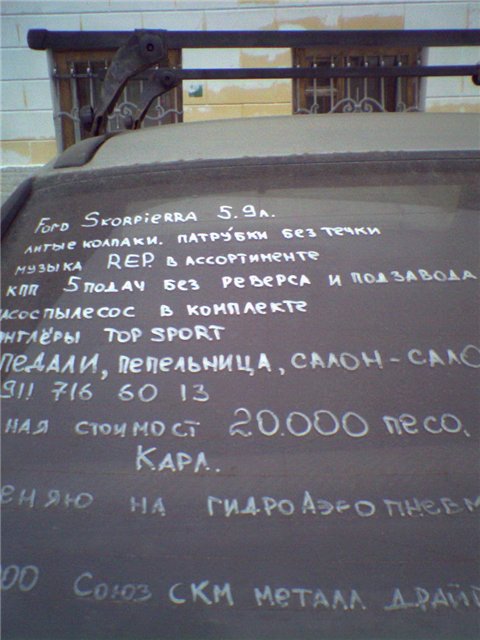 Ford Skorpierra 5.9л.
литые колпаки. патрубки без течки
музыка REP. в ассортименте
КПП 5 подач без реверса и подзавода
асос пылесос в комплекте
нглёры TOP SPORT
ПЕДАЛИ, ПЕПЕЛЬНИЦА, САЛОН-САЛО
911 716 60 13
ная стоимост 20.000 песо,
Карл.
еняю на гидроАэропневм
00 Союз СКМ металл драй